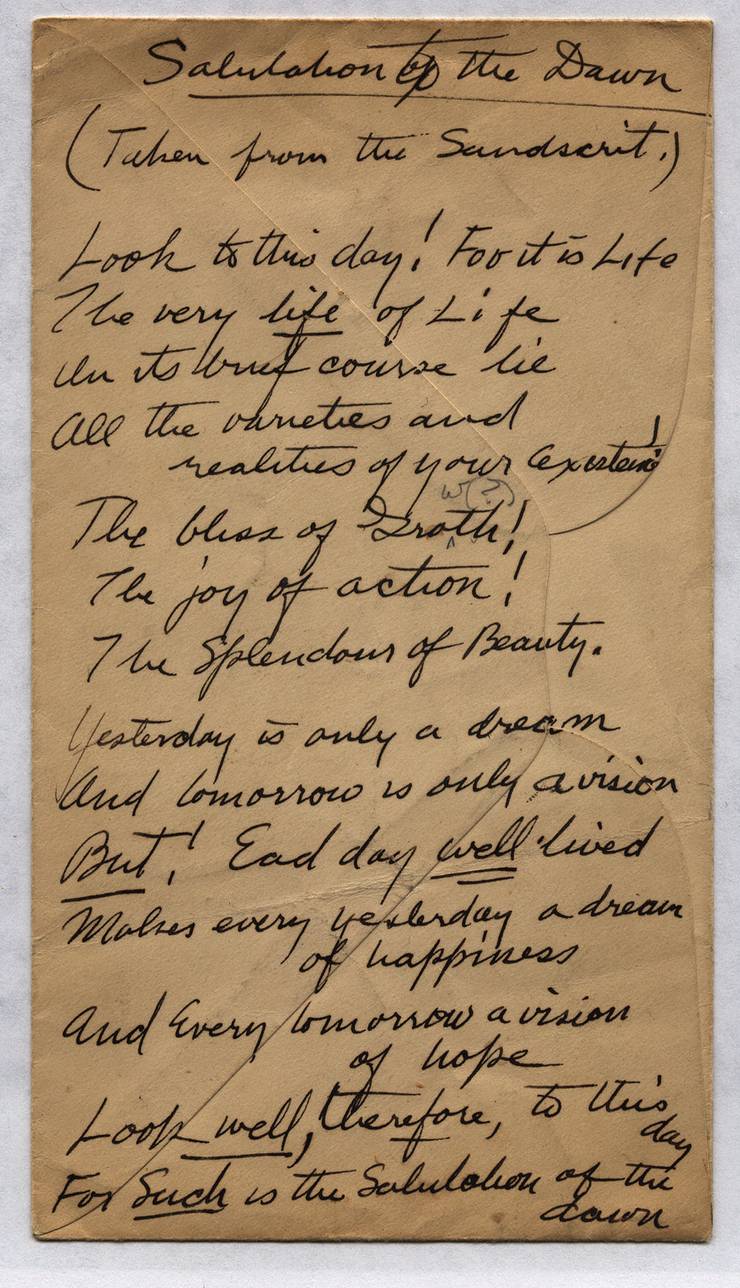 Salutation to the Dawn
(Taken from the Sandscrit.)
Look to this day! For it is Life
The very life of Life
In its brief course lie
All the varieties and
realities of your Existence!
w(?)
The bliss of Groth!
The joy of action!
The Splendour of Beauty.
Yesterday is only a dream
And tomorrow is only a vision
But! Each day well lived
Makes every yesterday a dream
of happiness
And Every tomorrow a vision
of hope
Look well, therefore, to this
day
For Such is the Salutation of the
dawn